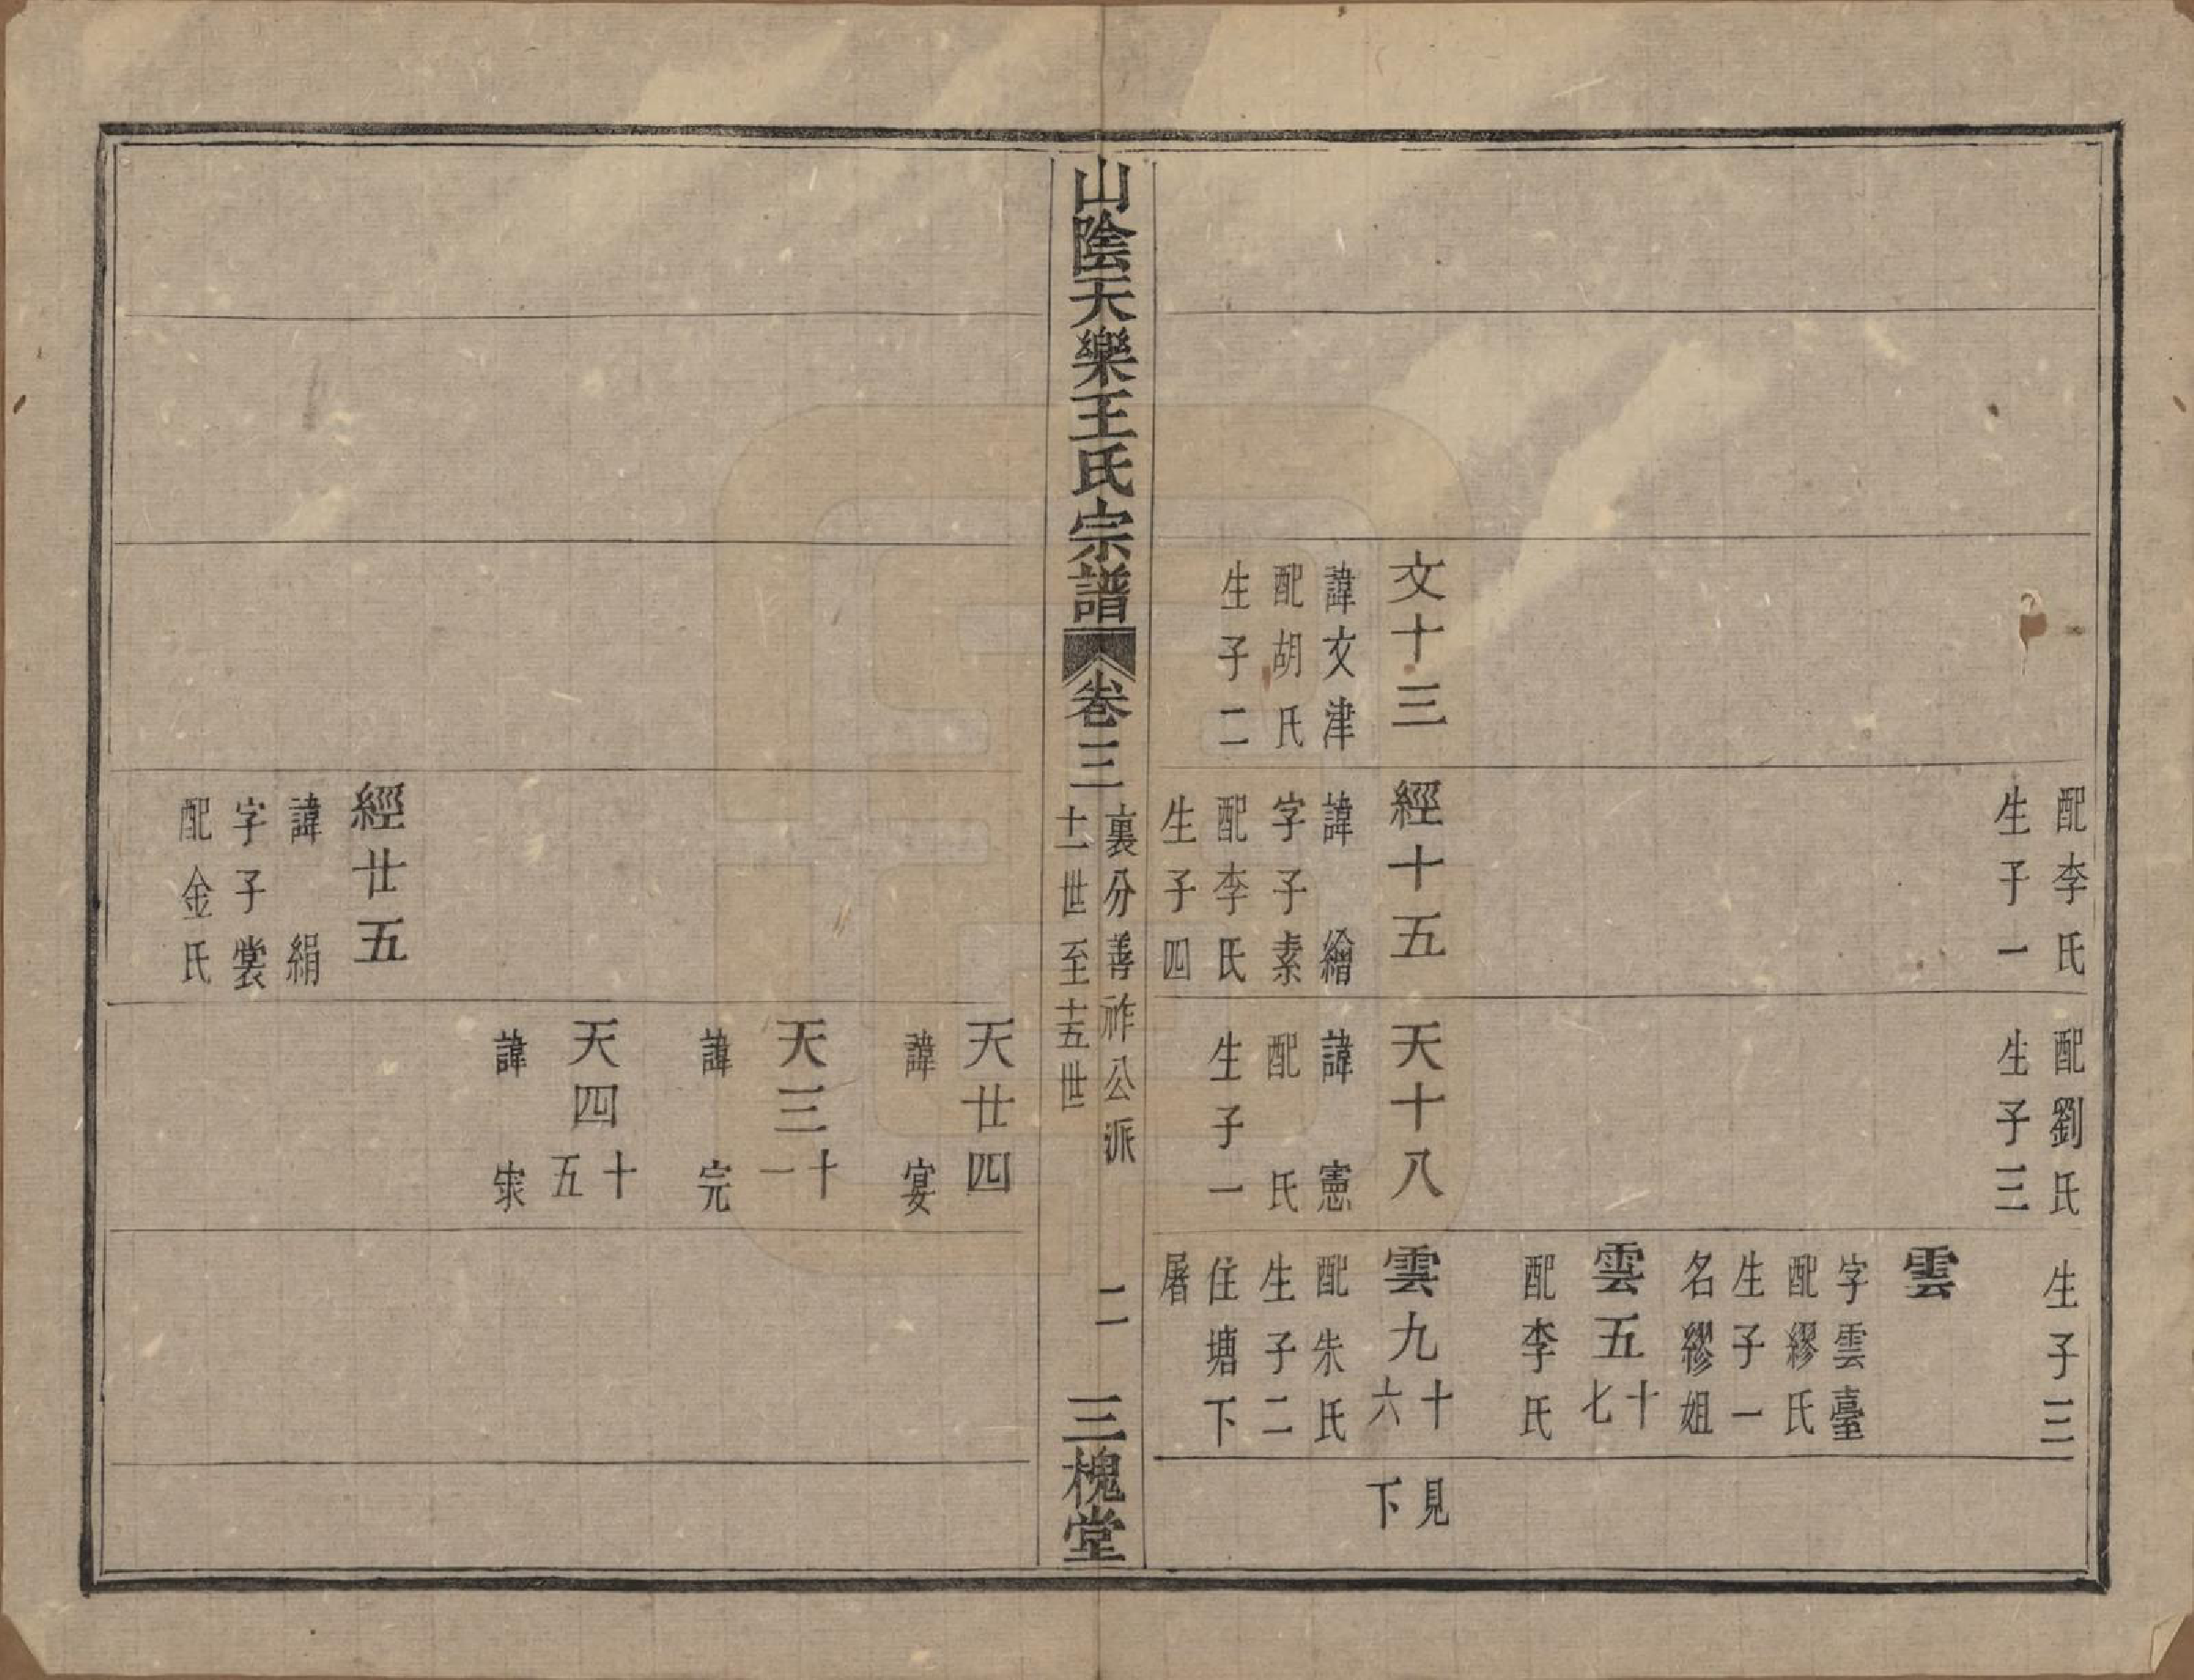 配李氏
生子一
配劉氏
生子三
生子三
雲
字雲臺
配繆氏
生子一
名繆姐
雲五十七
配李氏
文十三
諱文津
配胡氏
生子二
經十五
諱繪
字子素
配李氏
生子四
天十八
諱憲
配氏
生子一
雲九十六
配朱氏
生子二
住塘下
屠
見下
山陰天樂王氏宗譜
卷三
裏分善祚公派
十一世至十五世
二
三槐堂
天廿四
諱宴
天三十一
諱完
天四十五
諱
經廿五
諱絹
字子裳
配金氏